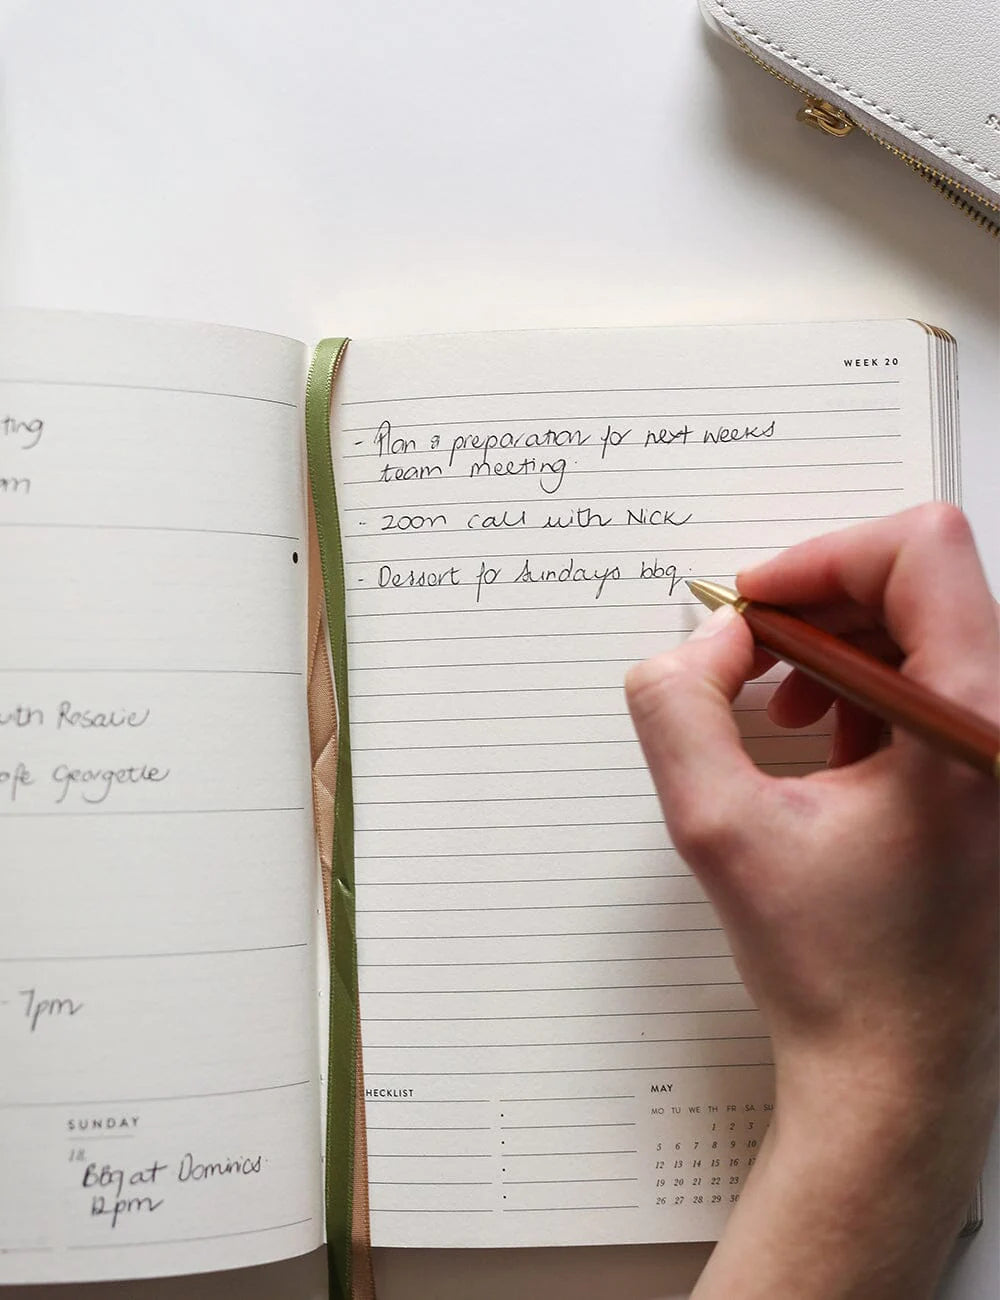 ting
am
with Rosalie
Georgette
- 7pm
SUNDAY
18
BBq at Dominics.
12pm
WEEK 20
- Plan & preparation for next weeks
team meeting.
- zoom call with Nick
- Dessert for Sundays bbq.
HECKLIST
MAY
MO TU WE TH FR SA SU
1 2 3
5 6 7 8 9 10
12 13 14 15 16 17
19 20 21 22 23
26 27 28 29 30